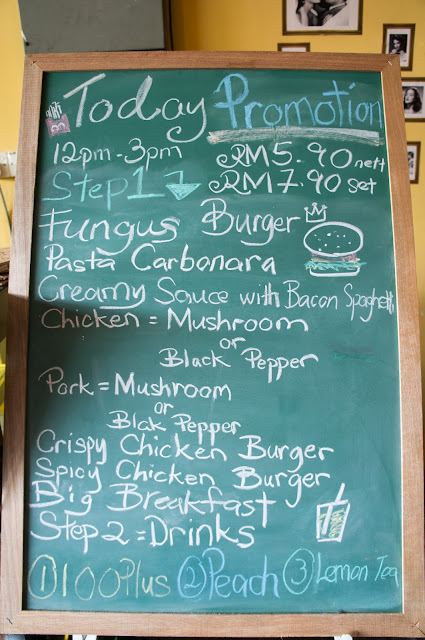 Today Promotion
12pm-3pm RM5.90 nett
Step 1 RM7.90 set
Fungus Burger
Pasta Carbonara
Creamy Sauce with Bacon Spaghetti
Chicken = Mushroom
or
Black Pepper
Pork = Mushroom
or
Blak Pepper
Crispy Chicken Burger
Spicy Chicken Burger
Big Breakfast
Step 2 = Drinks
① 100Plus ② Peach ③ Lemon Tea